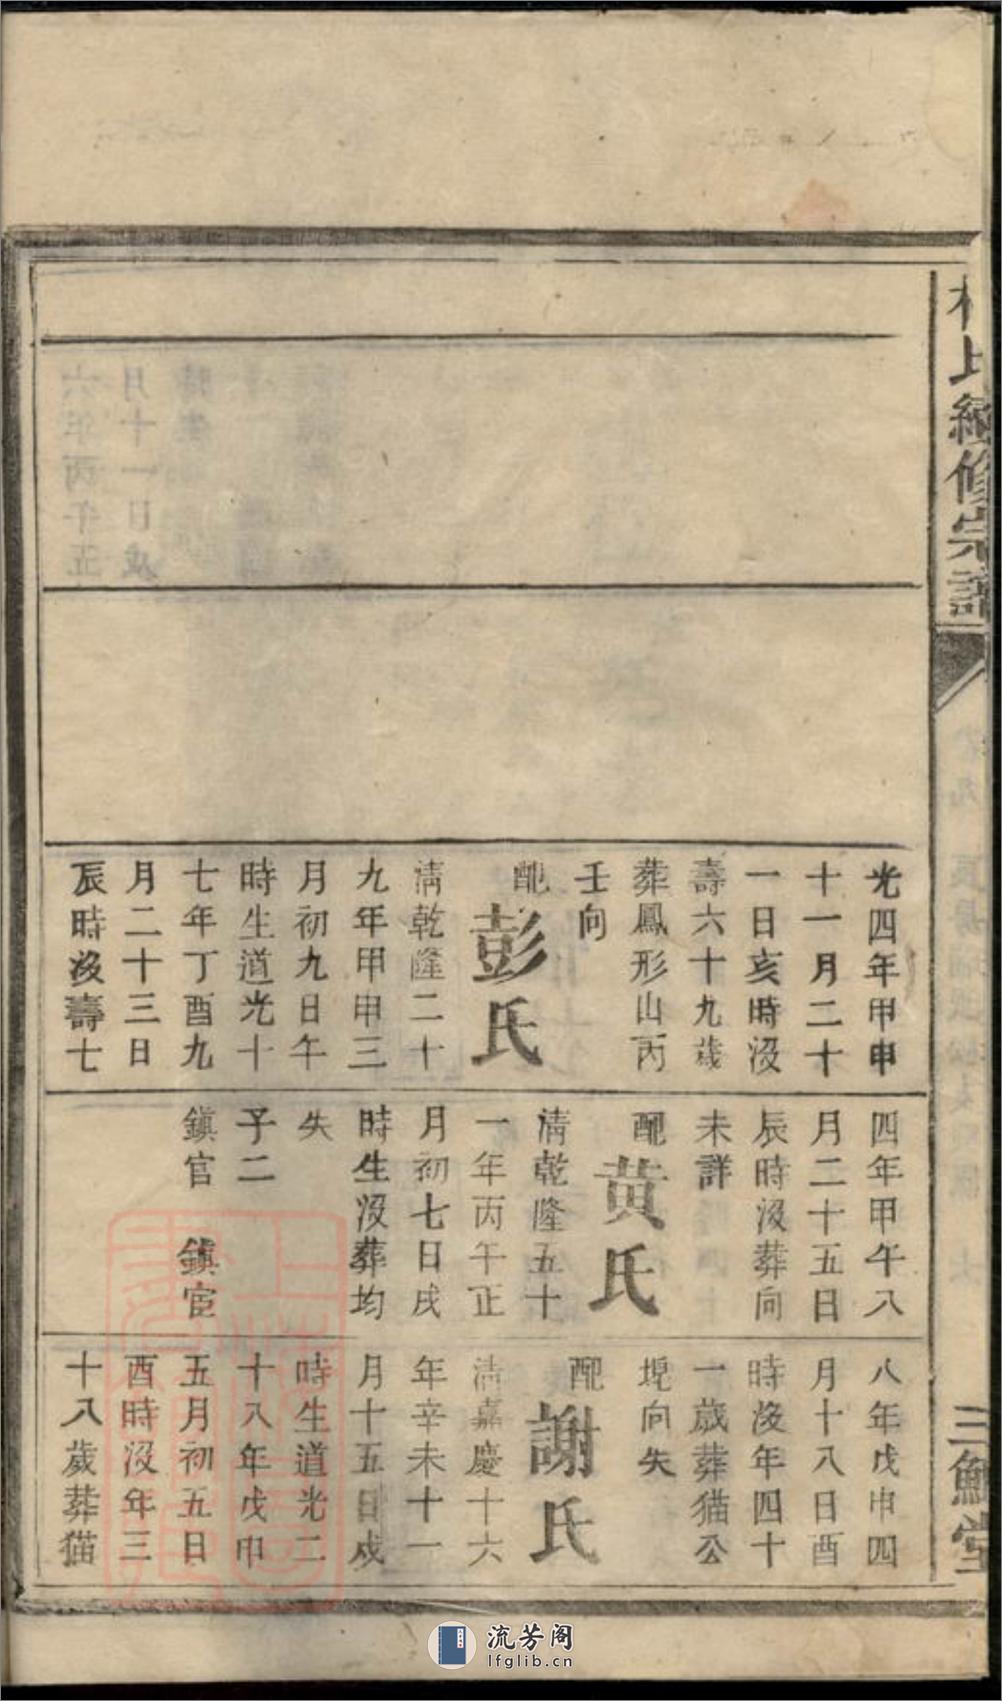 氏續修宗譜
三鱣堂
光四年甲申
十一月二十
一日亥時沒
壽六十九歲
葬鳳形山丙
壬向
配彭氏
清乾隆二十
九年甲申三
月初九日午
時生道光十
七年丁酉九
月二十三日
辰時沒壽七
四年甲午八
月二十五日
辰時沒葬向
未詳
配黄氏
清乾隆五十
一年丙午正
月初七日戌
時生沒葬均
失
子二
鎮官 鎮宦
八年戊申四
月十八日酉
時沒年四十
一歲葬猫公
垷向失
配謝氏
清嘉慶十六
年辛未十一
月十五日戌
時生道光二
十八年戊申
五月初五日
酉時沒年三
十八歲葬猫
流芳阁
lfglib.cn